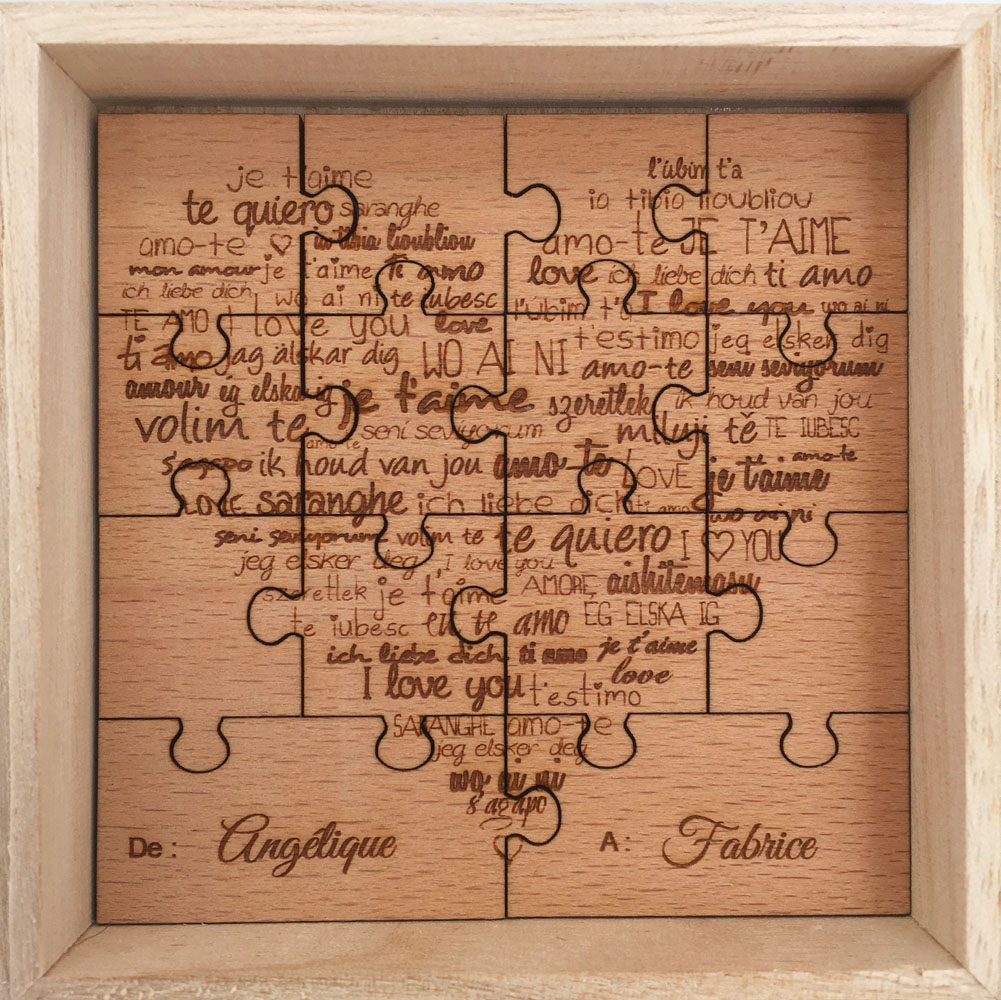 je t'aime l'ubim t'a
te quiero saranghe ia tibia lioubliou
amo-te ia tibia lioubliou amo-te JE T'AIME
mon amour je t'aime ti amo love ich liebe dich ti amo
ich liebe dich wo ai ni te iubesc l'ubim t'a I love you wo ai ni
TE AMO I love you love t'estimo jeg elsker dig
ti amo jag älskar dig WO AI NI amo-te seni seviyorum
amour ég elska ig je t'aime szeretlek ik houd van jou
volim te amo-te seni seviyorum miluji tě TE IUBESC
s'agapo ik houd van jou amo-te LOVE je t'aime amo-te
LOVE saranghe ich liebe dich ti amo wo ai ni
seni seviyorum volim te te quiero I YOU
jeg elsker deg I love you AMORE, aishitemasu
szeretlek je t'aime
te iubesc eu te amo EG ELSKA IG
ich liebe dich ti amo je t'aime
I love you t'estimo love
SARANGHE amo-te
jeg elsker deg
wo ai ni
s'agapo
De : Angélique A : Fabrice